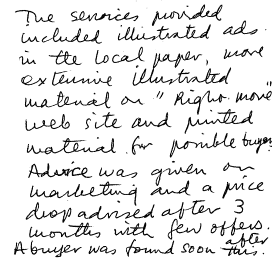 The services provided
included illustrated ads
in the local paper, more
extensive illustrated
material on "Right move"
web site and printed
material for possible buyers
Advice was given on
marketing and a price
drop advised after 3
months with few offers.
A buyer was found soon after this.